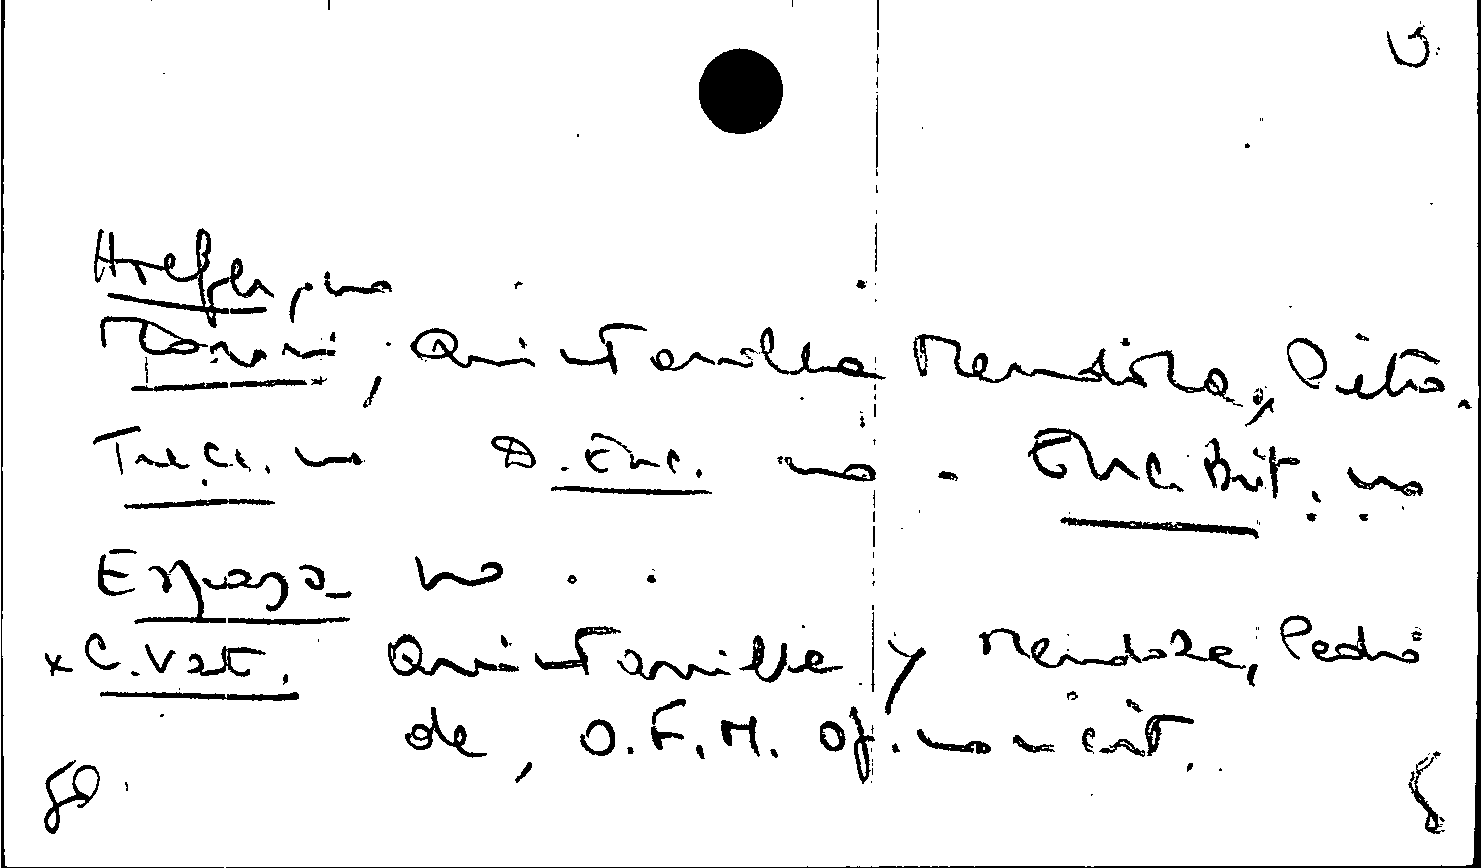 no
Moroni, Quintanilla Mendoza, Pietro.
Trecc. no D. Enc. no - Enc. Brit. no
Espasa no
x C. Vat. Quintanilla y Mendoza, Pedro
de, O.F.M. Of. no cit.